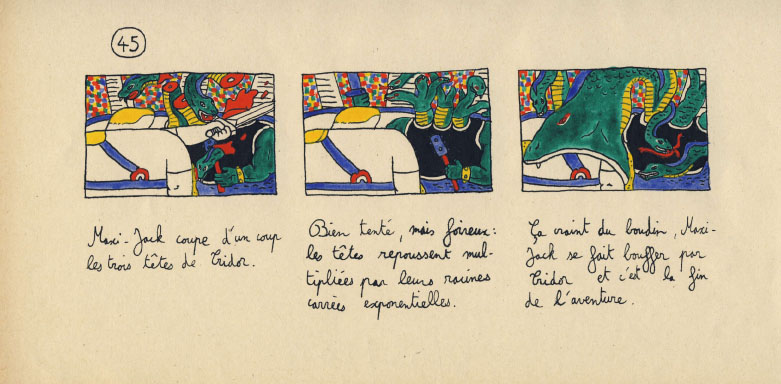 45
Maxi-Jack coupe d'un coup
les trois têtes de Tridor.
Bien tenté, mais foireux:
les têtes repoussent mul-
tipliées par leurs racines
carrées exponentielles.
Ça craint du boudin, Maxi-
Jack se fait bouffer par
Tridor et c'est la fin
de l'aventure.